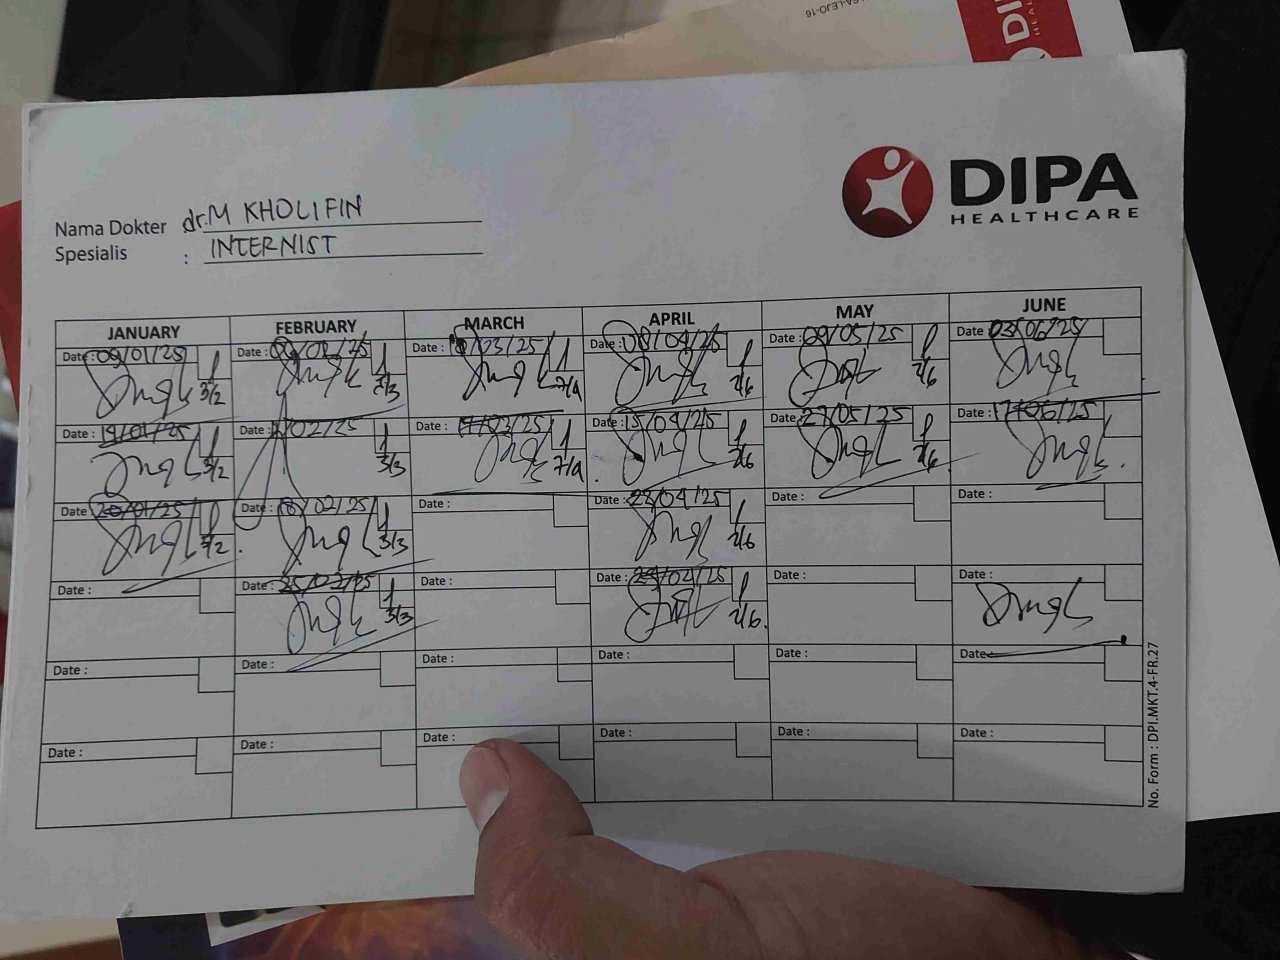 DIPA
HEALTHCARE
Nama Dokter dr. M KHOLIFIN
Spesialis : INTERNIST
JANUARY FEBRUARY MARCH APRIL MAY JUNE
Date : 09/01/25 3/2 Date : /02/25 3/3 Date : 7/4 Date : 08/04/25 2/6 Date : 09/05/25 2/6 Date : 03/06/25
Date : /01/25 3/2 Date : /02/25 3/3 Date : /03/25 7/4 Date : 15/04/25 2/6 Date : 27/05/25 2/6 Date : 17/06/25
Date : 20/01/25 3/2 Date : 18/02/25 3/3 Date : Date : 22/04/25 2/6 Date : Date :
Date : Date : 25/02/25 3/3 Date : Date : /04/25 2/6 Date : Date :
Date : Date : Date : Date : Date : Date
Date : Date : Date : Date : Date : Date :
No. Form : DPI.MKT.4-FR.27